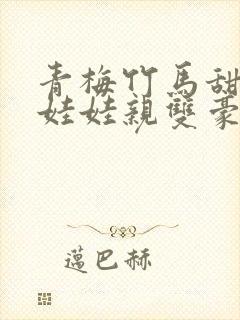 青梅竹馬甜
娃娃親雙豪
邁巴赫